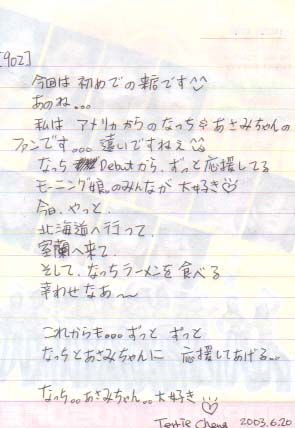 [902]
今回は初めての来店です^^
あのね。。。
私はアメリカからのなっち&あさみちゃんの
ファンです。。。遠いですねえ
なっち Debutから、ずっと応援してる
モーニング娘。のみんなが大好き♡
今日、やっと、
北海道へ行って、
室蘭へ来て、
そして、なっちラーメンを食べる
幸わせなあ〜
これからも。。。ずっと ずっと
なっちとあさみちゃんに 応援してあげる。。
なっち。。あさみちゃん。。大好き♡
Terrie Cheng 2003.6.20